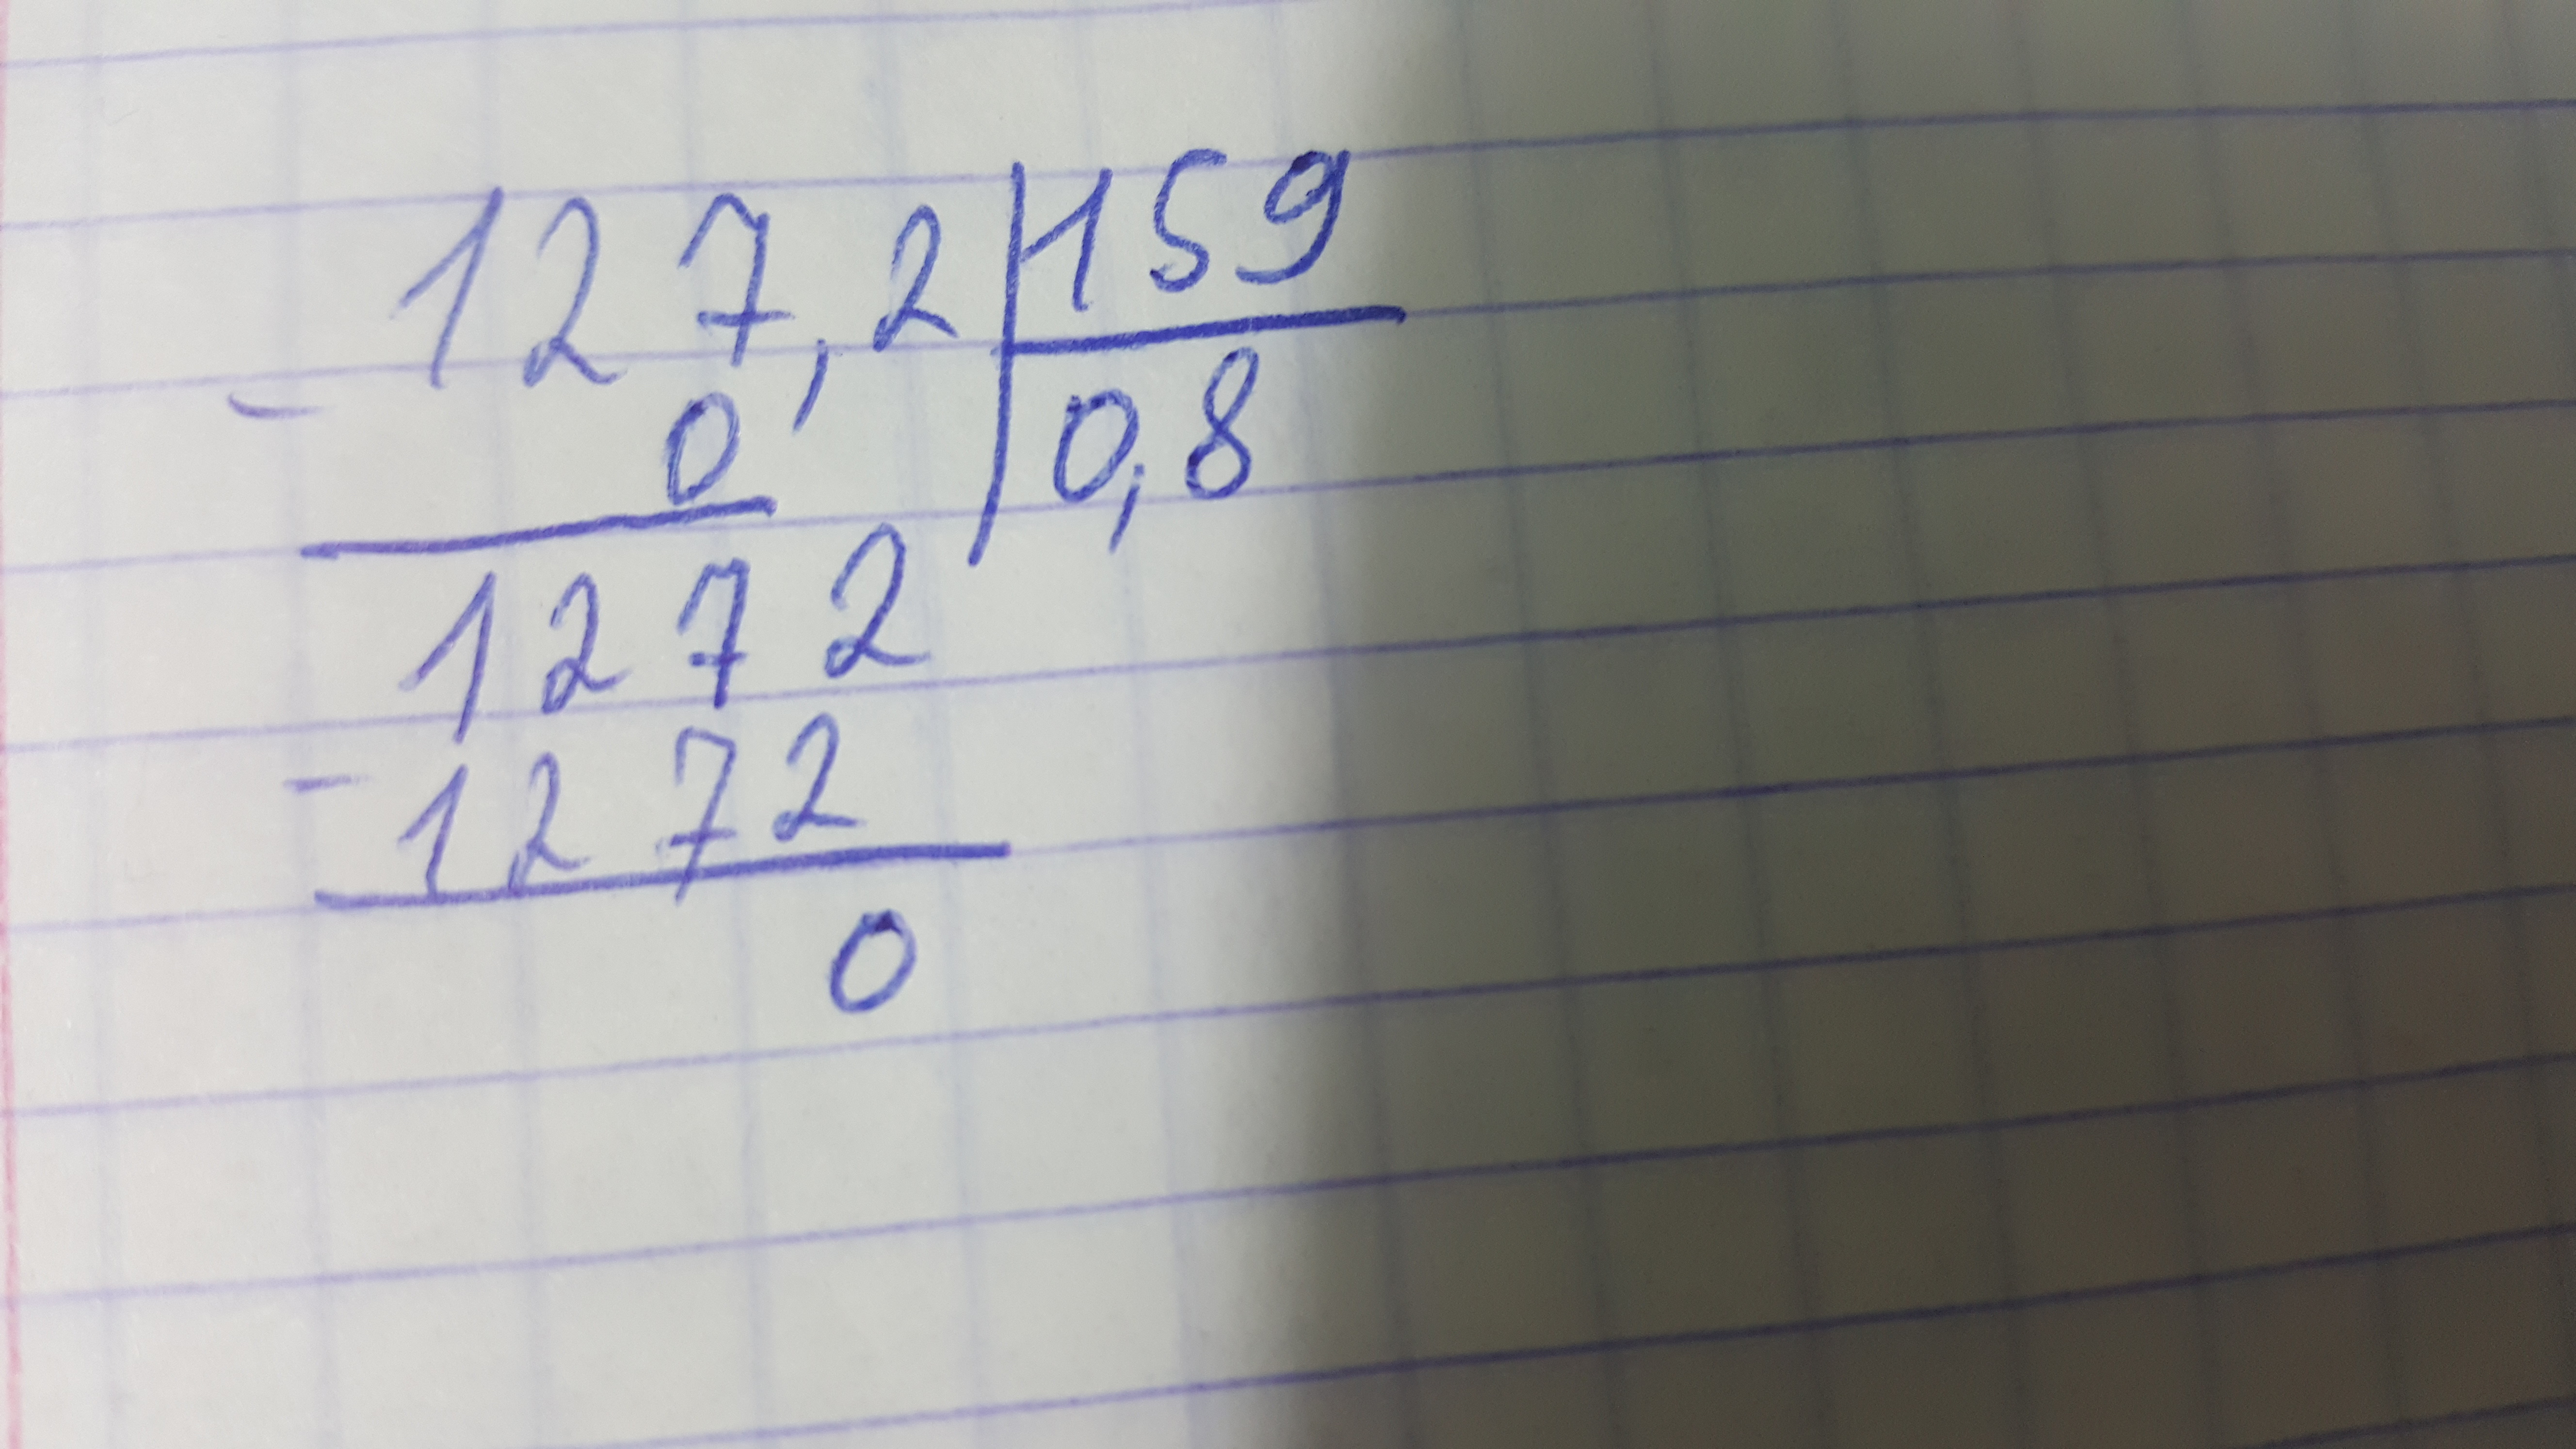 127,2 159
- 0 0,8
1272
- 1272
0